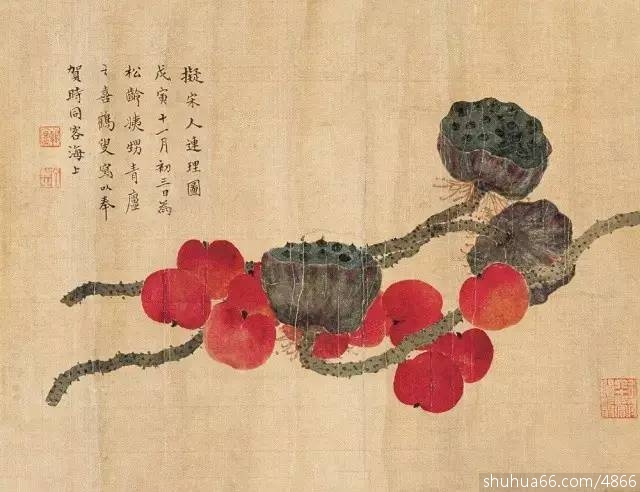 擬宋人連理圖
戊寅十一月初三日為
松齡姨甥青廬
之喜鶴叟寫以奉
賀時同客海上
shuhua66.com/4866